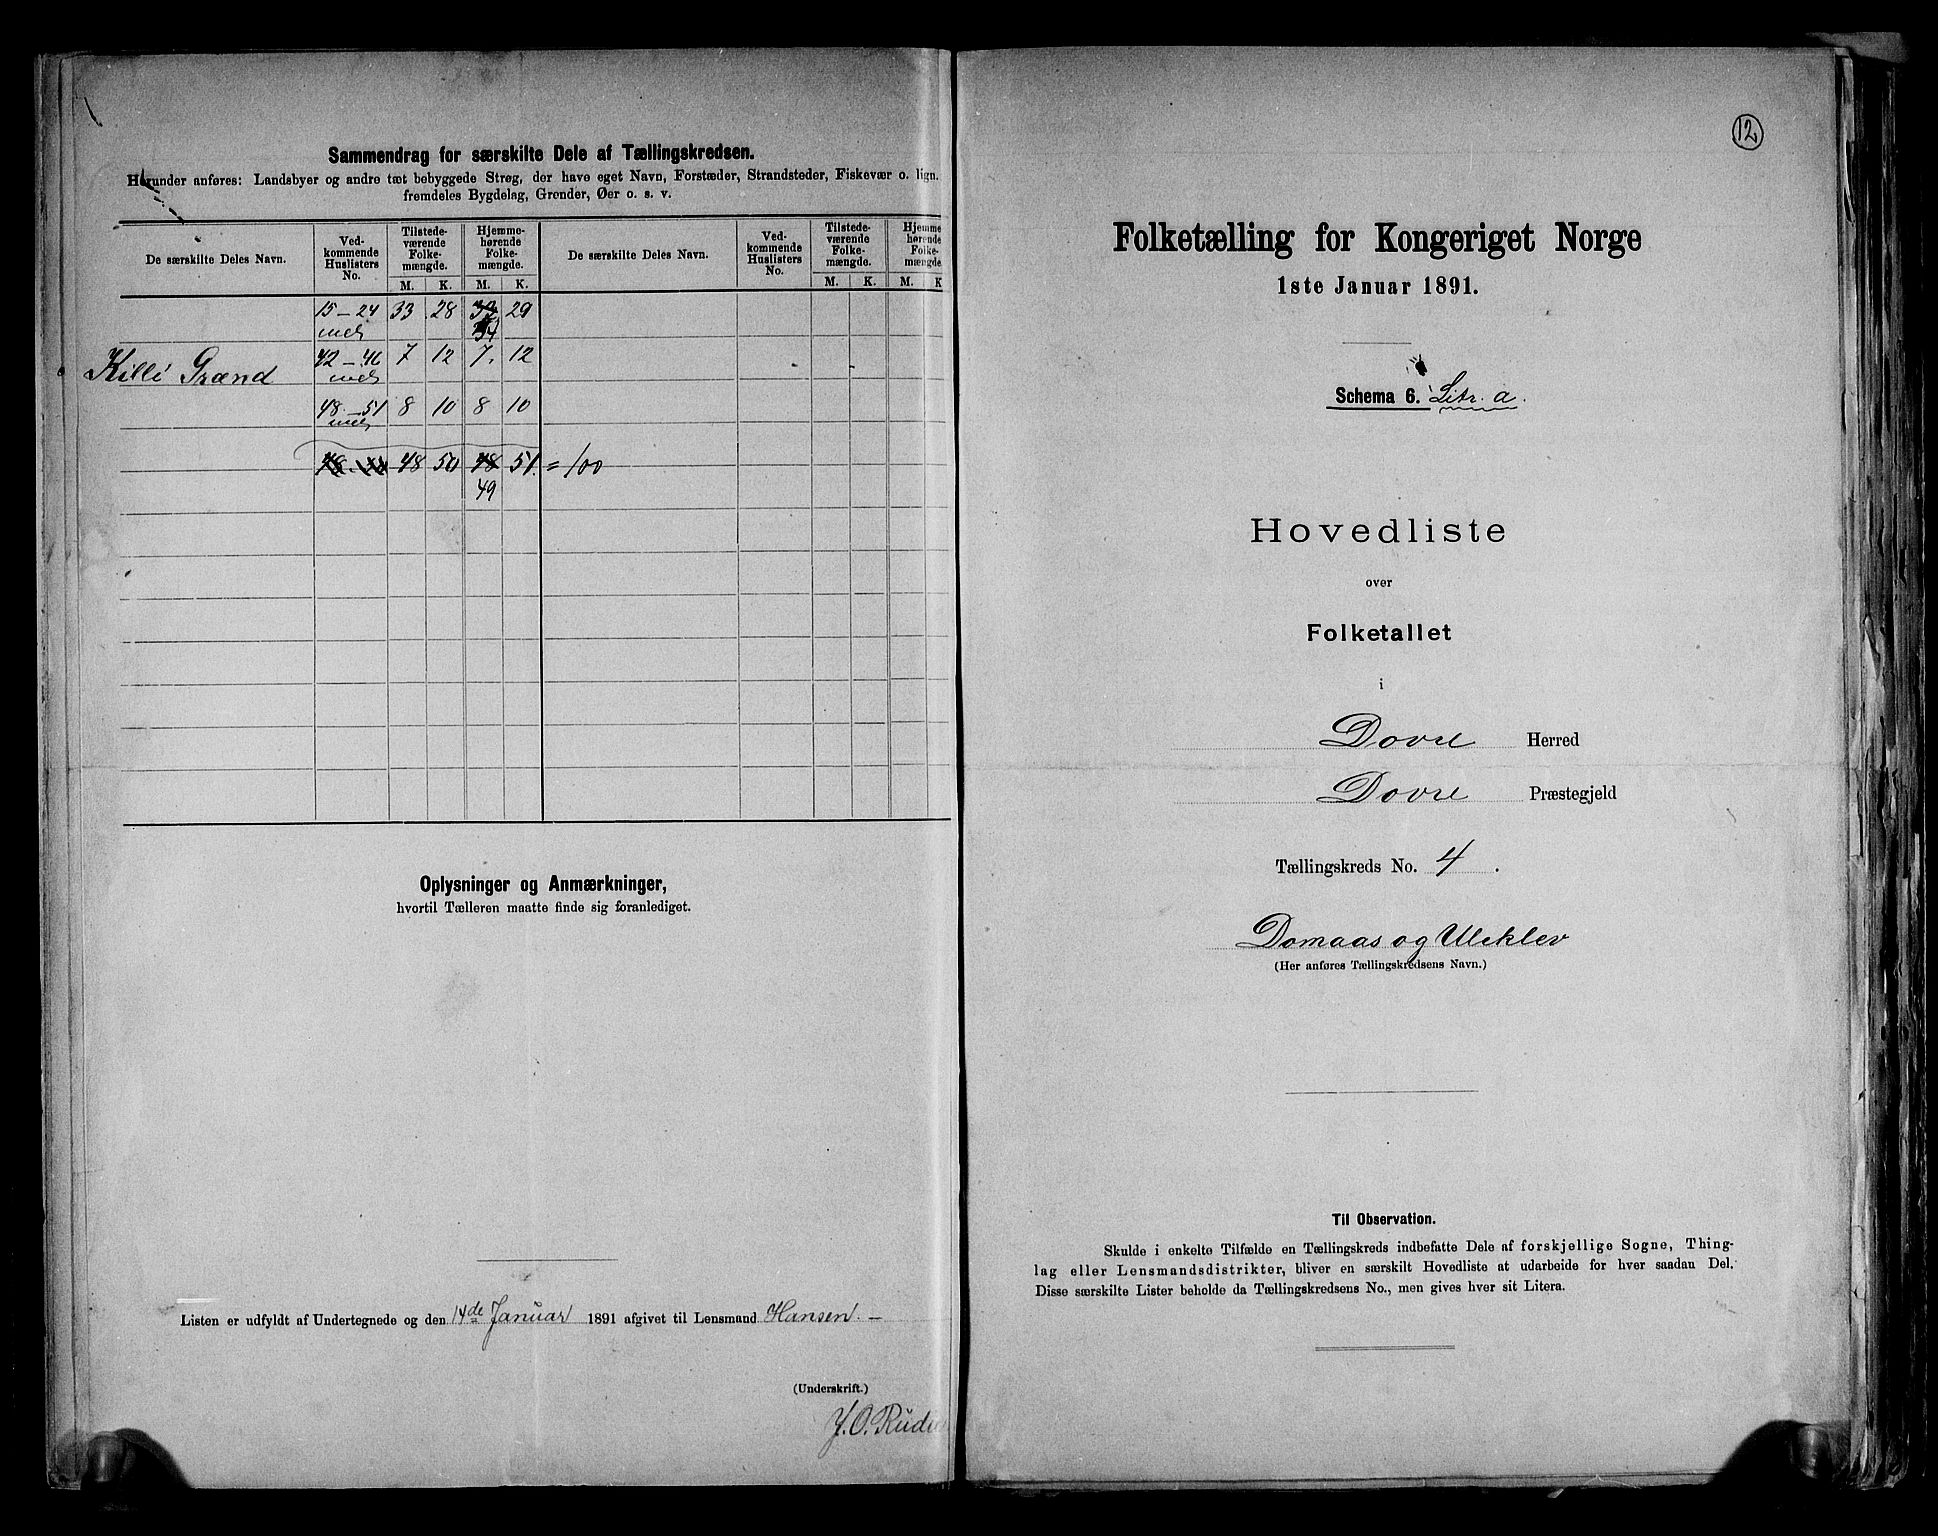 Sammendrag for særskilte Dele af Tællingskredsen.
Herunder anføres: Landsbyer og andre tæt bebyggede Strøg, der have eget Navn, Forstæder, Strandsteder, Fiskevær o. lign.
fremdeles Bygdelag, Grender, Øer o. s. v.
De særskilte Deles Navn. Ved-kommende Huslisters No. Tilstede-værende Folke-mængde. Hjemme-hørende Folke-mængde. De særskilte Deles Navn. Ved-kommende Huslisters No. Tilstede-værende Folke-mængde. Hjemme-hørende Folke-mængde
M. K. M. K. M. K. M. K
15-24 33 28 33 29
incl. 34
Killi Grænd 42-46 7 12 7. 12
incl.
48-51 8 10 8 10
incl.
48 50 48 51. = 100
49
Oplysninger og Anmærkninger,
hvortil Tælleren maatte finde sig foranlediget.
Listen er udfyldt af Undertegnede og den 14de Januar 1891 afgivet til Lensmand Hansen. –
(Underskrift.)
12
Folketælling for Kongeriget Norge
1ste Januar 1891.
Schema 6. Litr. a.
Hovedliste
over
Folketallet
i
Dovre Herred
Dovre Præstegjeld
Tællingskreds No. 4.
Domaas og Uleklev
(Her anføres Tællingskredsens Navn.)
Til Observation.
Skulde i enkelte Tilfælde en Tællingskreds indbefatte Dele af forskjellige Sogne, Thing-
lag eller Lensmandsdistrikter, bliver en særskilt Hovedliste at udarbeide for hver saadan Del.
Disse særskilte Lister beholde da Tællingskredsens No., men gives hver sit Litera.